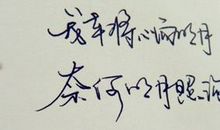 我本将心向明月
奈何明月照沟